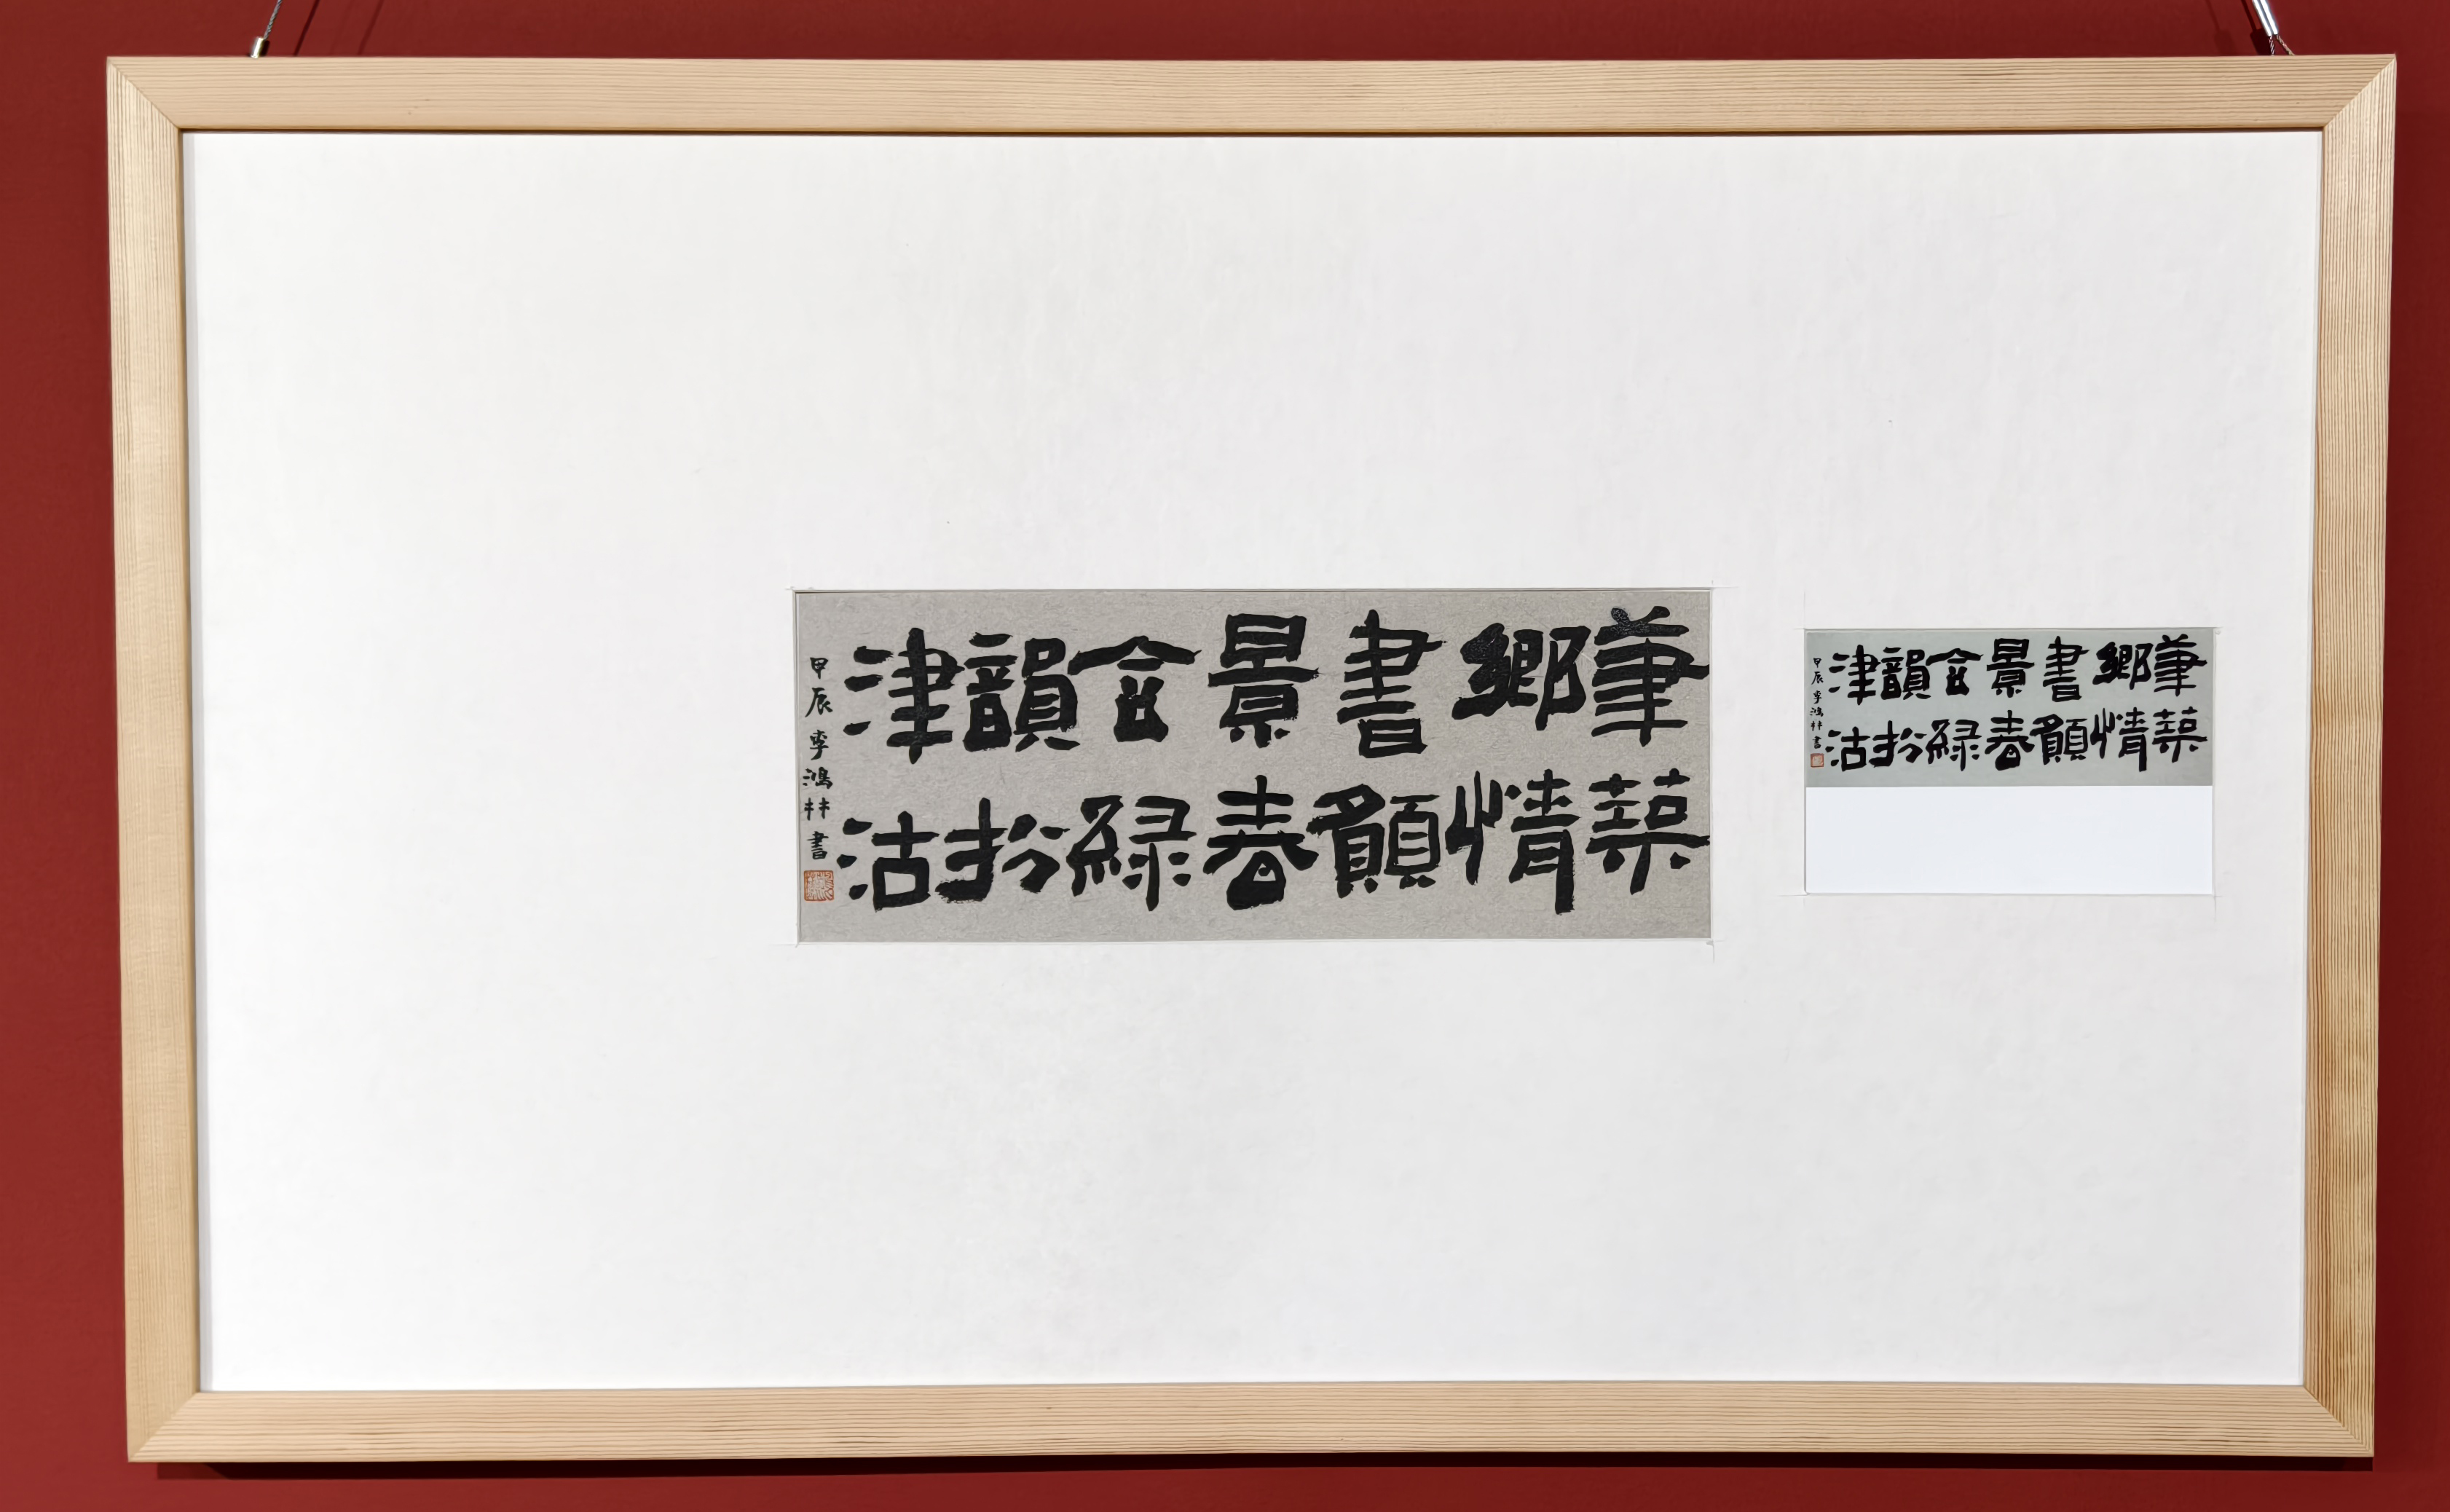 筆築
鄉情
書願
景春
含綠
韻扮
津沽
甲辰李鴻林書
筆築
鄉情
書願
景春
含綠
韻扮
津沽
甲辰李鴻林書